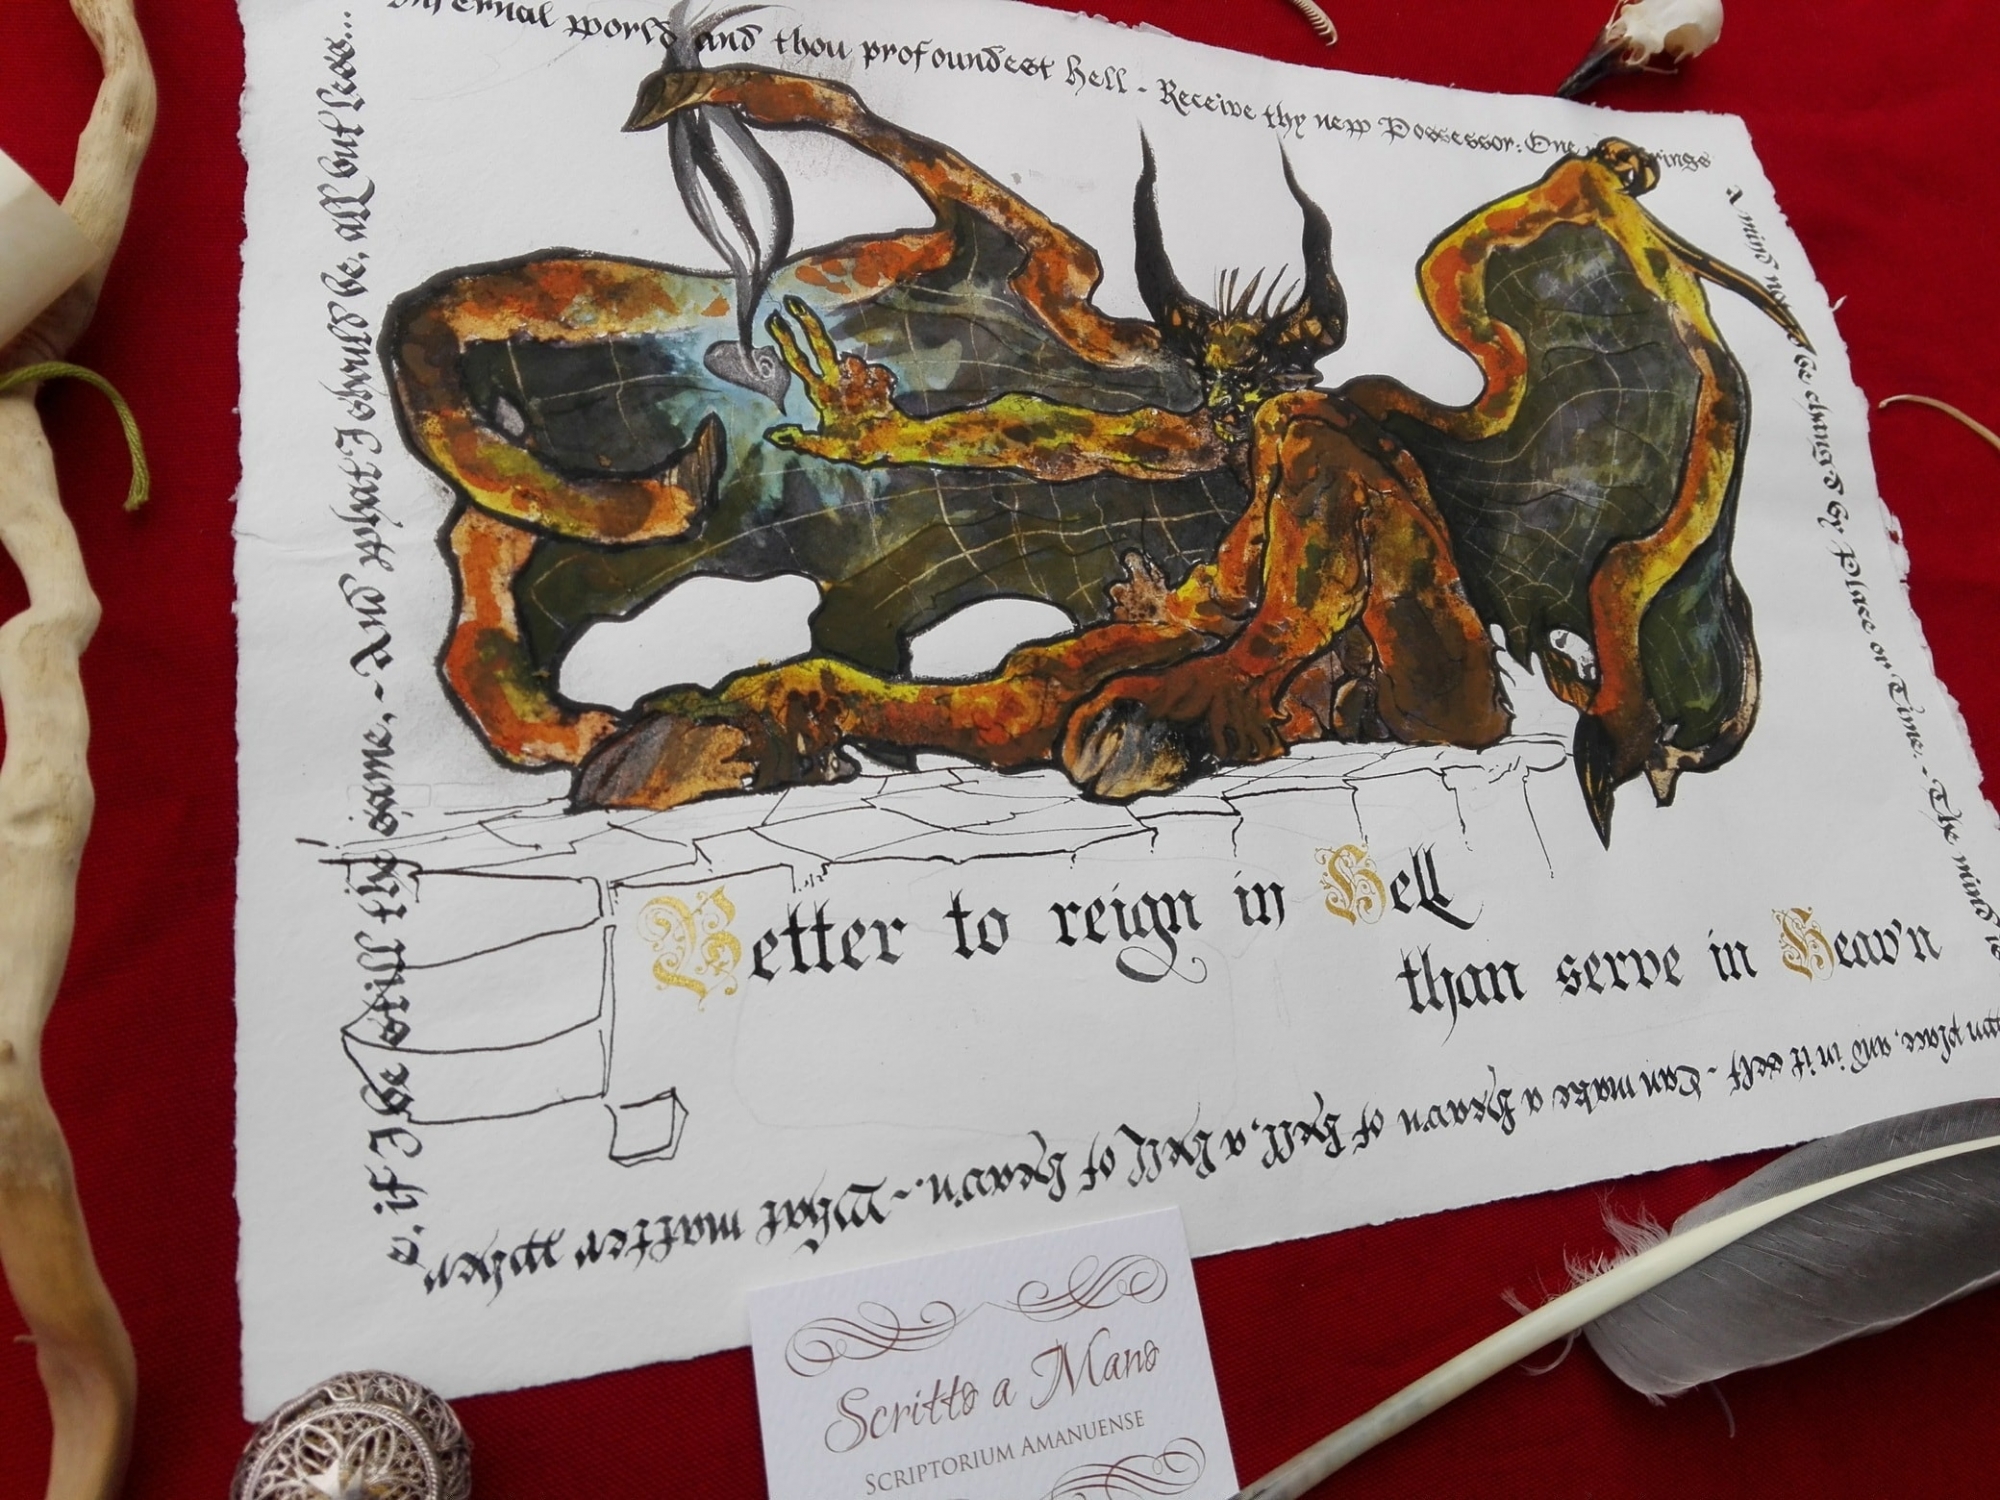 Infernal world and thou profoundest hell - Receive thy new Possessor: One
A mind not be chang'd by Place or Time. - The mind is
place, and in it self - Can make a heav'n of hell, a hell of heav'n. - What matter where
if I be still the same, - And what I should be, all but less...
Better to reign in Hell
than serve in Heav'n
Scritto a Mano
SCRIPTORIUM AMANUENSE